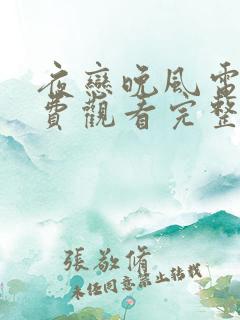 夜戀晚風電
費觀看完整
張敬脩
未经同意禁止转载